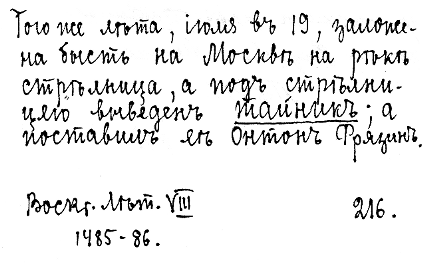 Того же лѣта, іюля въ 19, заложе-
на бысть на Москвѣ на рѣкѣ
стрѣлница, а подъ стрѣлни-
цею выведенъ тайникъ; а
поставилъ еѣ Онтонъ Фрязинъ.
Воскр. Лѣт. VIII 216.
1485-86.